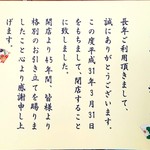 長年ご利用頂きまして、
誠にありがとうございます。
この度平成31年3月31日
をもちまして、閉店すること
に致しました。
開店より45年間、皆様より
格別のお引き立てを賜りま
したこと心より感謝申し上
げます。